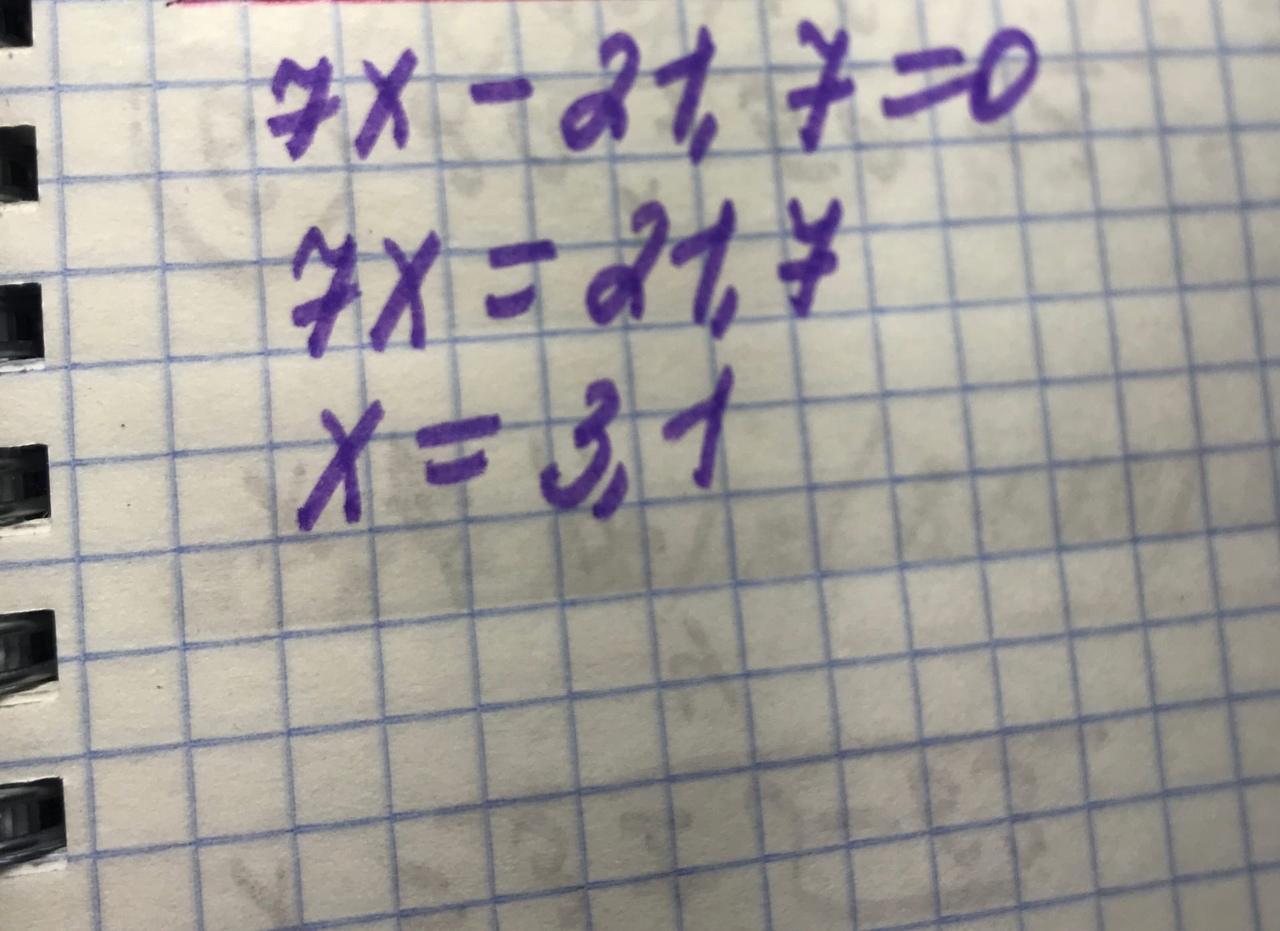 7x - 21,7 = 0
7x = 21,7
x = 3,1